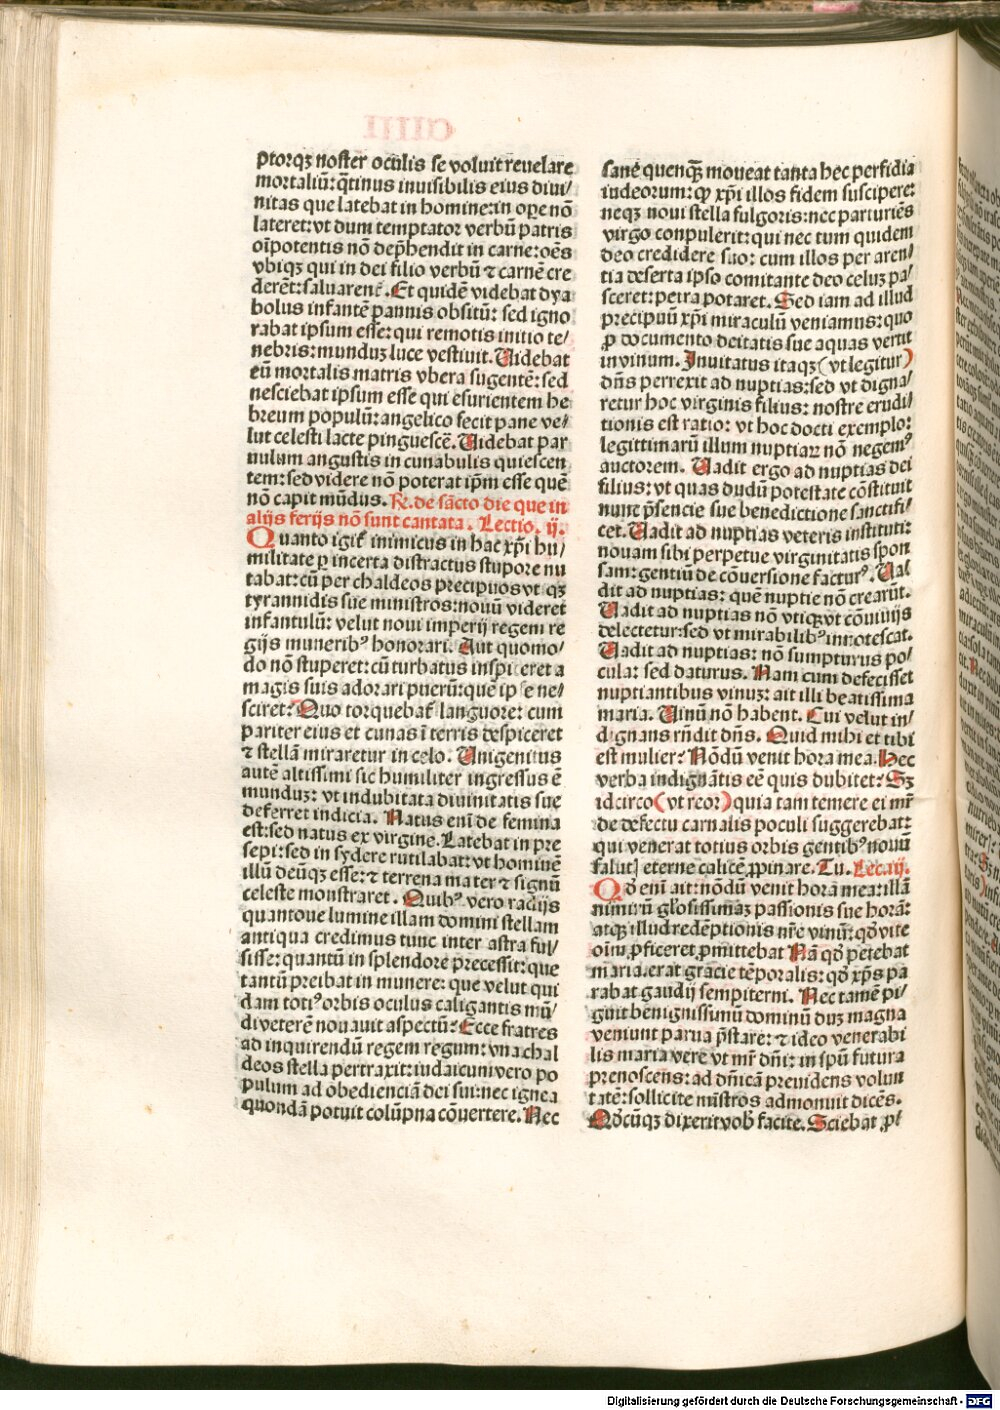 ptorqꝫ noster oculis se voluit reuelare
mortaliū: q̄tinus inuisibilis eius diui/
nitas que latebat in homine: in oꝑe nō
lateret: vt dum temptator verbū patris
oīpotentis nō dep̄hendit in carne: oēs
vbiqꝫ qui in dei filio verbū ⁊ carnē cre
derēt: saluarent᷑. Et quidē videbat dya
bolus infantē pannis obsitū: sed igno
rabat ipsum esse: qui remotis initio te/
nebris: munduꝫ luce vestiuit. Uidebat
eū mortalis matris vbera sugentē: sed
nesciebat ipsum esse qui esurientem he
breum populū: angelico fecit pane ve/
lut celesti lacte pinguescē. Uidebat par
uulum angustis in cunabulis quiescen
tem: sed videre nō poterat ip̄m esse quē
nō capit mūdus. R̄. de sācto die que in
alijs ferijs nō sunt cantata. Lectio. ij.
Quanto igit᷑ inimicus in hac xp̄i hu/
militate ꝑ incerta distractus stupore nu
tabat: cū per chaldeos precipuos vt qꝫ
tyrannidis sue ministros: nouū videret
infantulū: velut noui imperij regem re
gijs munerib⁹ honorari. Aut quomo/
do nō stuperet: cū turbatus inspiceret a
magis suis adorari puerū: quē ipse ne/
sciret? Quo torquebat᷑ languore: cum
pariter eius et cunas ī terris despiceret
⁊ stellā miraretur in celo. Unigenitus
autē altissimi sic humiliter ingressus ē
munduꝫ: vt indubitata diuinitatis sue
deferret indicia. Natus eni᷒ de femina
est: sed natus ex virgine. Latebat in pre
sepi: sed in sydere rutilabat: vt hominē
illū deūqꝫ esse: ⁊ terrena mater ⁊ signū
celeste monstraret. Quib⁹ vero radijs
quantoue lumine illam domini stellam
antiqua credimus tunc inter astra ful/
sisse: quantū in splendore precessit: que
tantū preibat in munere: que velut qui
dam toti⁹ orbis oculus caligantis mū/
di veterē nouauit aspectū? Ecce fratres
ad inquirendū regem regum: vna chal
deos stella pertraxit: iudaicum vero po
pulum ad obedienciā dei sui: nec ignea
quondā potuit colūpna cōuertere. Nec
sane quenqꝫ moueat tanta hec perfidia
iudeorum: ꝙ xp̄i illos fidem suscipere:
neqꝫ noui stella fulgoris: nec parturiēs
virgo conpulerit: qui nec tum quidem
deo credidere suo: cum illos per aren/
tia deserta ipso comitante deo celuꝫ pa/
sceret: petra potaret. Sed iam ad illud
precipuū xp̄i miraculū veniamus: quo
ꝓ documento deitatis sue aquas vertit
in vinum. Inuitatus itaqꝫ (vt legitur)
dn̄s perrexit ad nuptias: sed vt digna/
retur hoc virginis filius: nostre erudi/
tionis est ratio: vt hoc docti exemplo:
legittimarū illum nuptiaꝝ nō negem⁹
auctorem. Uadit ergo ad nuptias dei
filius: vt quas dudū potestate cōstituit
nunc p̄sencie sue benedictione sanctifi/
cet. Uadit ad nuptias veteris instituti:
nouam sibi perpetue virginitatis spon
sam: gentiū de cōuersione factur⁹. Ua/
dit ad nuptias: quē nuptie nō crearūt.
Uadit ad nuptias nō vtiqꝫ vt cōuiuijs
delectetur: sed vt mirabilib⁹ inotescat.
Uadit ad nuptias: nō sumpturus po/
cula: sed daturus. Nam cum defecisset
nuptiantibus vinuꝫ: ait illi beatissima
maria. Uinū nō habent. Cui velut in/
dignans rn̄dit dn̄s. Quid mihi et tibi
est mulier? Nōdū venit hora mea. Hec
verba indignātis eē quis dubitet? Sꝫ
idcirco (vt reor) quia tam temere ei mr̄
de defectu carnalis poculi suggerebat:
qui venerat totius orbis gentib⁹ nouū
salut᷒ eterne calicē ꝓpinare. Tu. Lec. iij.
Qd̓ eni᷒ ait: nōdū venit hora mea: illā
nimirū gl̓osissimaꝫ passionis sue horā:
atqꝫ illud redēptionis nr̄e vinū: qd̓ vite
oīm ꝓficeret ꝓmittebat Nā qd̓ petebat
maria. erat gracie tēporalis: qd̓ xp̄s pa
rabat gaudij sempiterni. Nec tamē pi/
guit benignissimū dominū duꝫ magna
veniunt parua p̄stare: ⁊ ideo venerabi
lis maria vere vt mr̄ dn̄i: in sp̄u futura
prenoscens: ad dn̄icā preuidens volun
tatē: sollicite mīstros admonuit dicēs.
Qd̓cūqꝫ dixerit vob̓ facite. Sciebat ꝓ/
Digitalisierung gefördert durch die Deutsche Forschungsgemeinschaft - DFG